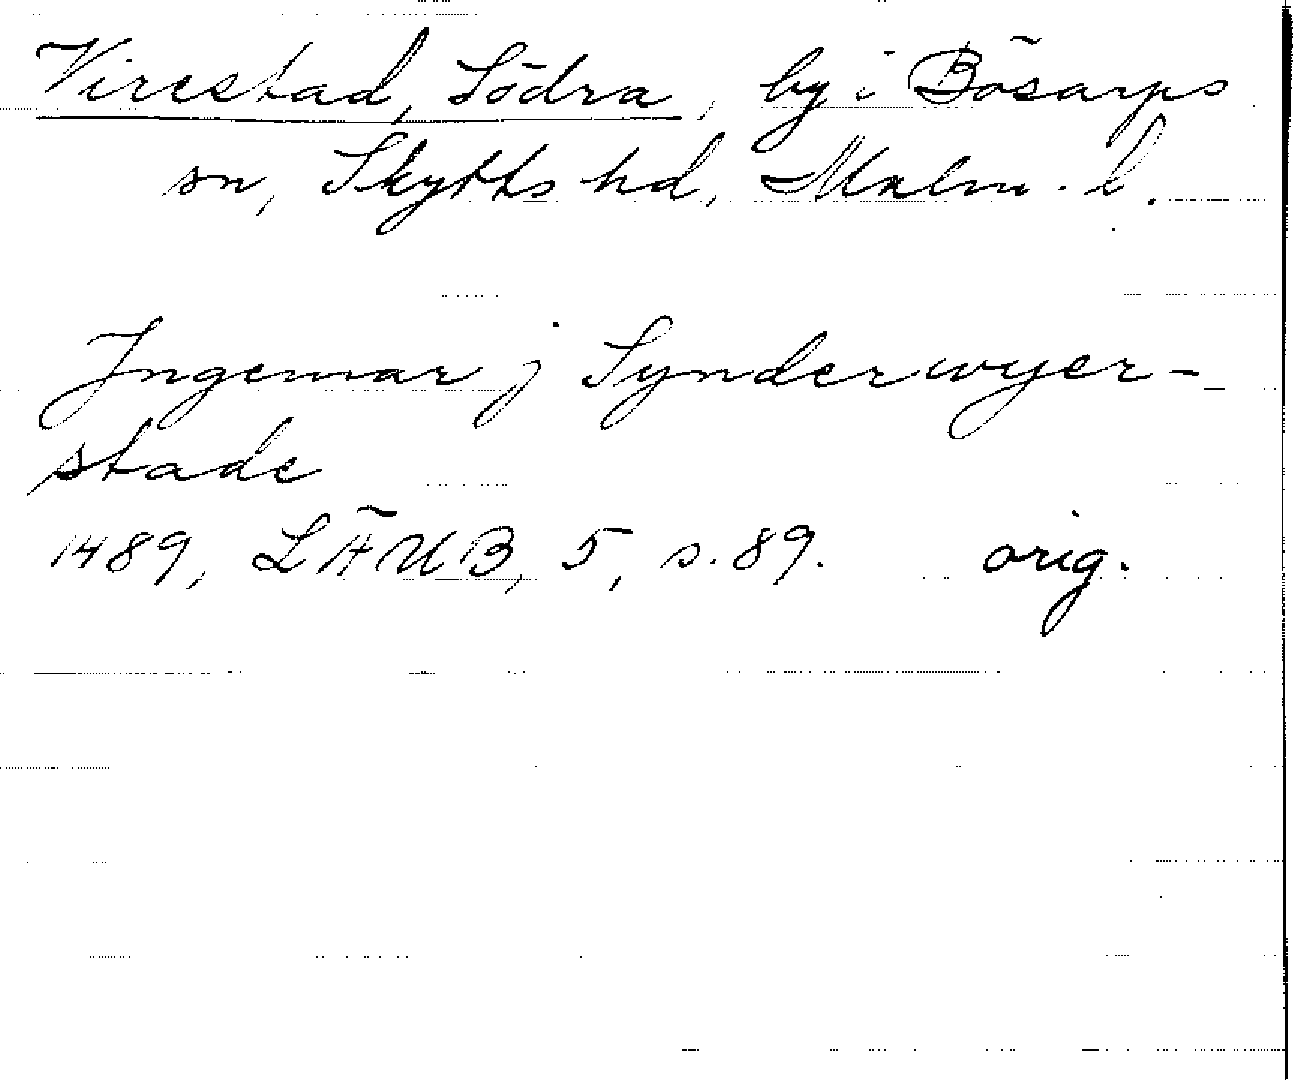 Virestad, Södra, by i Bösarps
sn, Skytts hd, Malm. l.
Ingemar j Synderwyer-
stade
1489, LÄUB, 5, s. 89. orig.